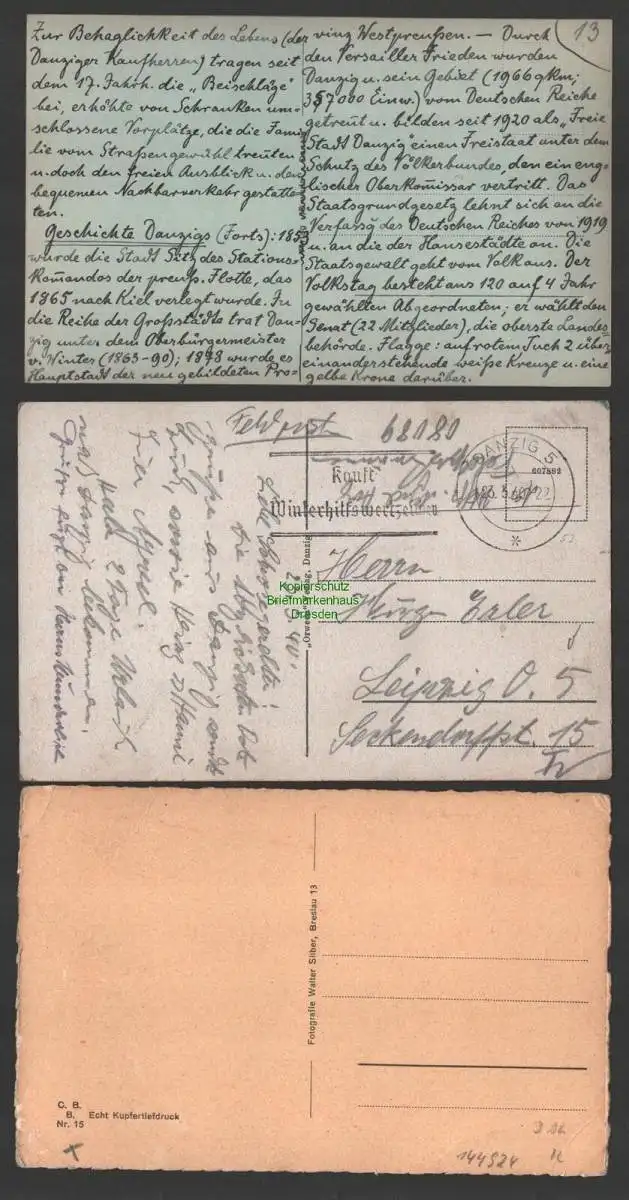 13
Zur Behaglichkeit des Lebens (der
Danziger Kaufherren) tragen seit
dem 17. Jahrh. die „Beischläge"
bei, erhöhte von Schranken um-
schlossene Vorplätze, die die Fami
lie vom Straßengewühl trennten
u. doch den freien Ausblick u. den
bequemen Nachbarverkehr gestatte-
ten.
Geschichte Danzigs (Forts): 1853
wurde die Stadt Sitz des Stations-
komandos der preuss. Flotte, das
1865 nach Kiel verlegt wurde. In
die Reihe der Großstädte trat Dan-
zig unter dem Oberbürgermeister
v. Winter (1863-90); 1878 wurde es
Hauptstadt der neu gebildeten Pro-
vinz Westpreußen. — Durch
den Versailler Frieden wurden
Danzig u. sein Gebiet (1966 qkm;
357000 Einw.) vom Deutschen Reiche
getrennt u. bilden seit 1920 als „Freie
Stadt Danzig" einen Freistaat unter dem
Schutz des Völkerbundes, den ein eng-
lischer Oberkommissar vertritt. Das
Staatsgrundgesetz lehnt sich an die
Verfassg des Deutschen Reiches von 1919
u. an die der Hansestädte an. Die
Staatsgewalt geht vom Volk aus. Der
Volkstag besteht aus 120 auf 4 Jahr
gewählten Abgeordneten; er wählt den
Senat (22 Mitglieder), die oberste Landes-
behörde. Flagge: auf rotem Tuch 2 über-
einanderstehende weiße Kreuze u. eine
gelbe Krone darüber.
Feldpost
68080
Kauft
Winterhilfswertzeichen
DANZIG 5
607882
23.3.40
23.3.40.
Grüße aus Danzig sendet
Euch, sowie Heinz u. Hanni
2 Tage Urlaub
nach Danzig bekommen.
Herrn
Kurz Erler
Leipzig O. 5
Seckendorffst. 15
Verlag, Danzig
Kopierschutz
Briefmarkenhaus
Dresden
Fotografie Walter Silber, Breslau 13
C. B.
B. Echt Kupfertiefdruck
Nr. 15
144924